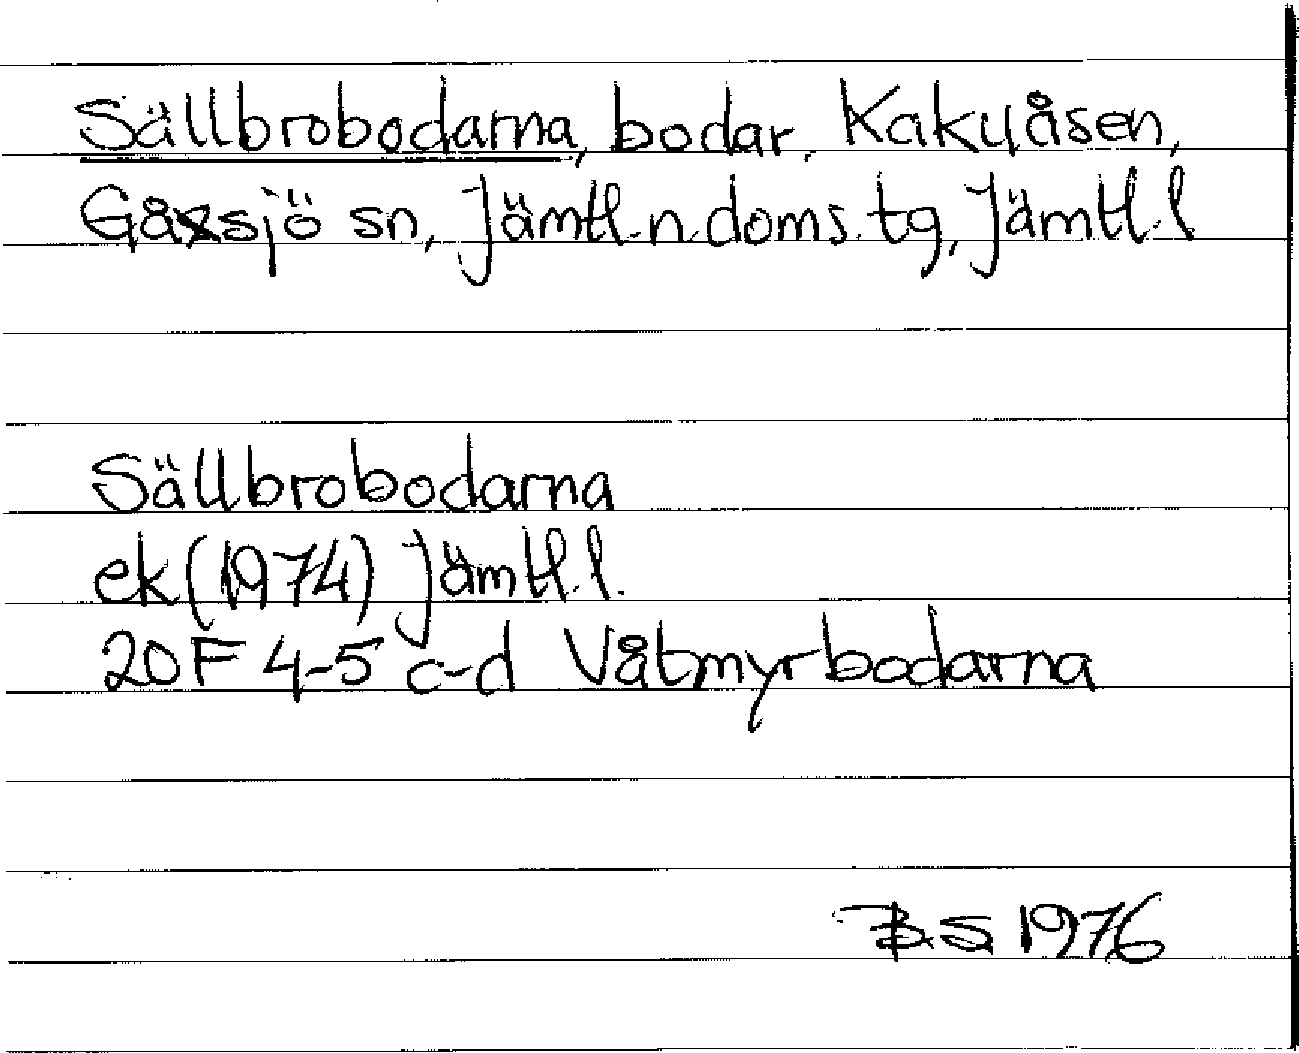 Sällbrobodarna, bodar, Kakuåsen,
Gåxsjö sn, Jämtl. n. doms. tg, Jämtl. l
Sällbrobodarna
ek (1974) Jämtl. l.
20F 4-5 c-d Våtmyrbodarna
B.S 1976